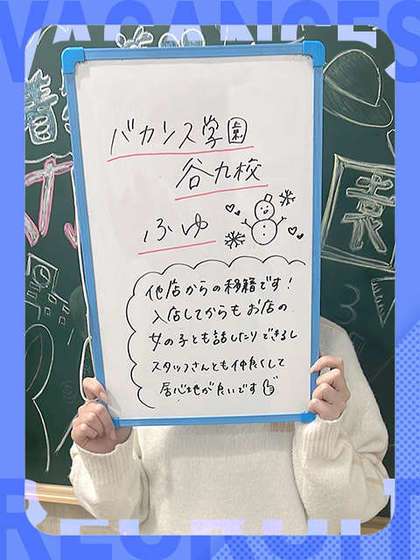 VACANCES
バカンス学園
谷九校
ふゆ
他店からの移籍です!
入店してからもお店の
女の子とも話したりできるし
スタッフさんとも仲良くして
居心地がいいです
RECRUIT